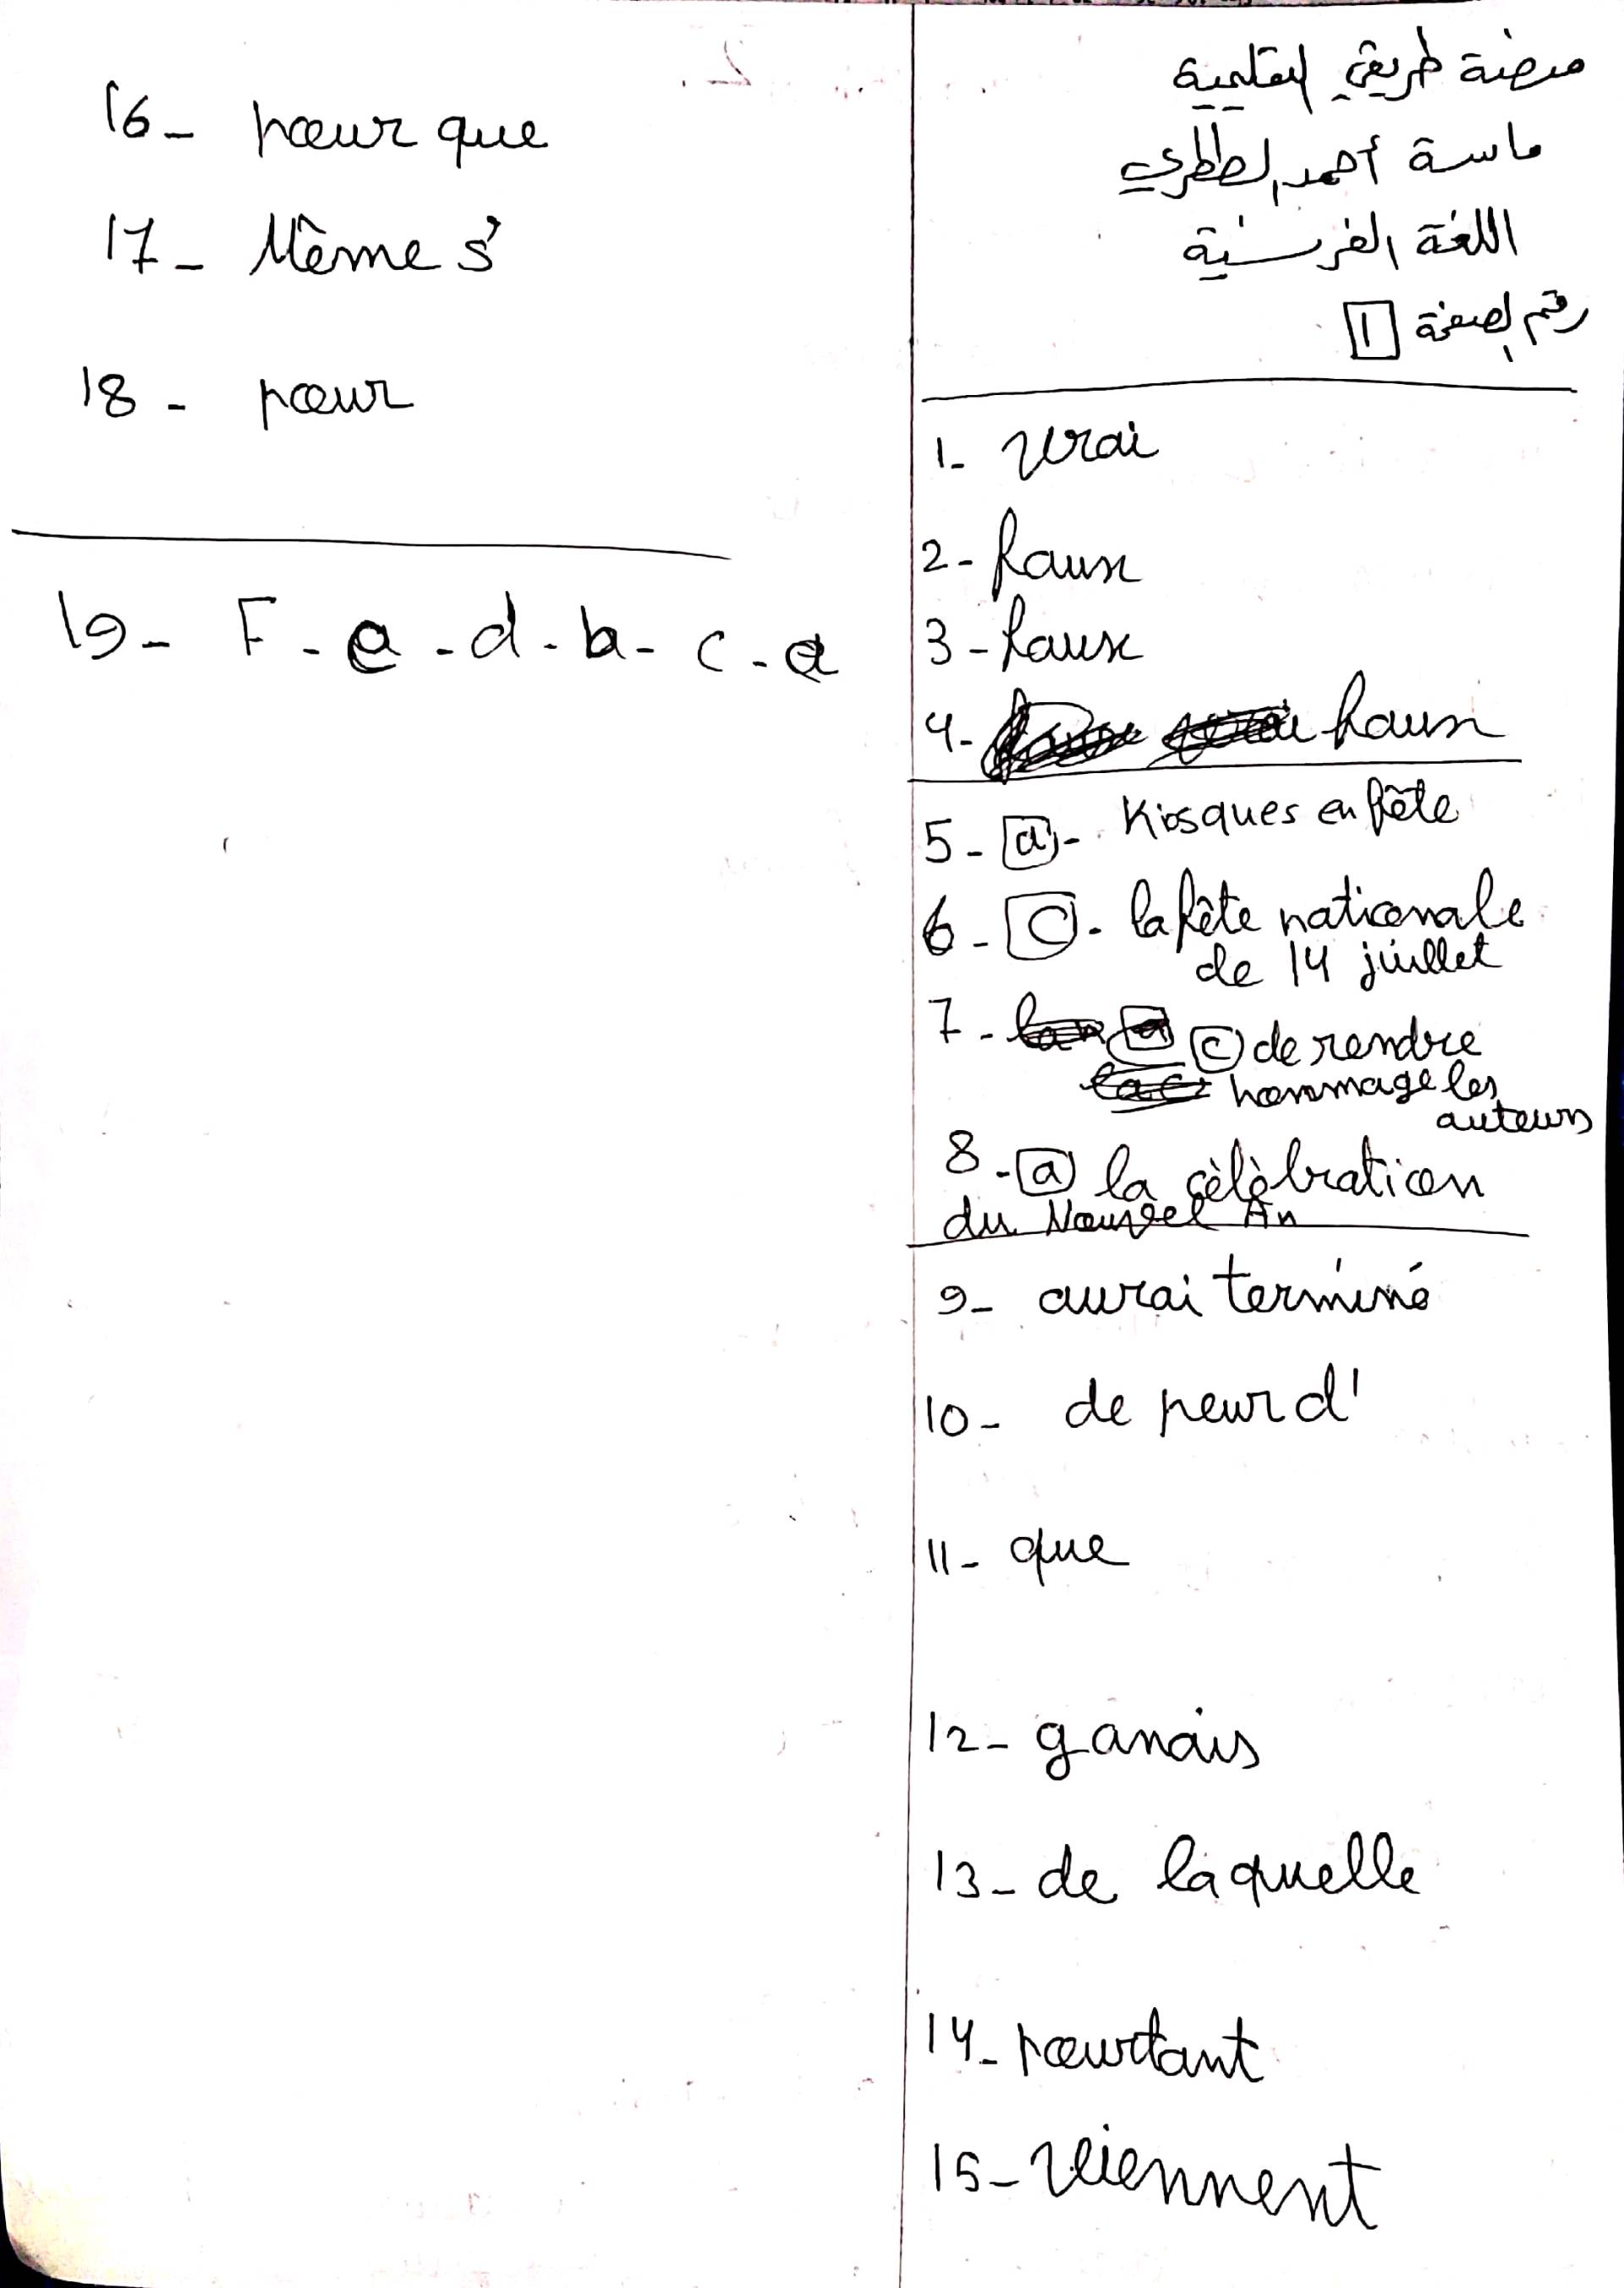 منصة طريقي التعليمية
ماسة أحمد الططري
اللغة الفرنسية
رقم الصفحة 1
1- vrai
2- faux
3- faux
4- faux
5- a - Kiosques en fête
6- C - la fête nationale
de 14 juillet
7- C de rendre
hommage les
auteurs
8- a la célèbration
du Nouvel An
9- aurai terminé
10- de peur d'
11- que
12- ganais
13- de laquelle
14- pourtant
15- viennent
16- pour que
17- Même s'
18- pour
19- F - e - d - b - c - a